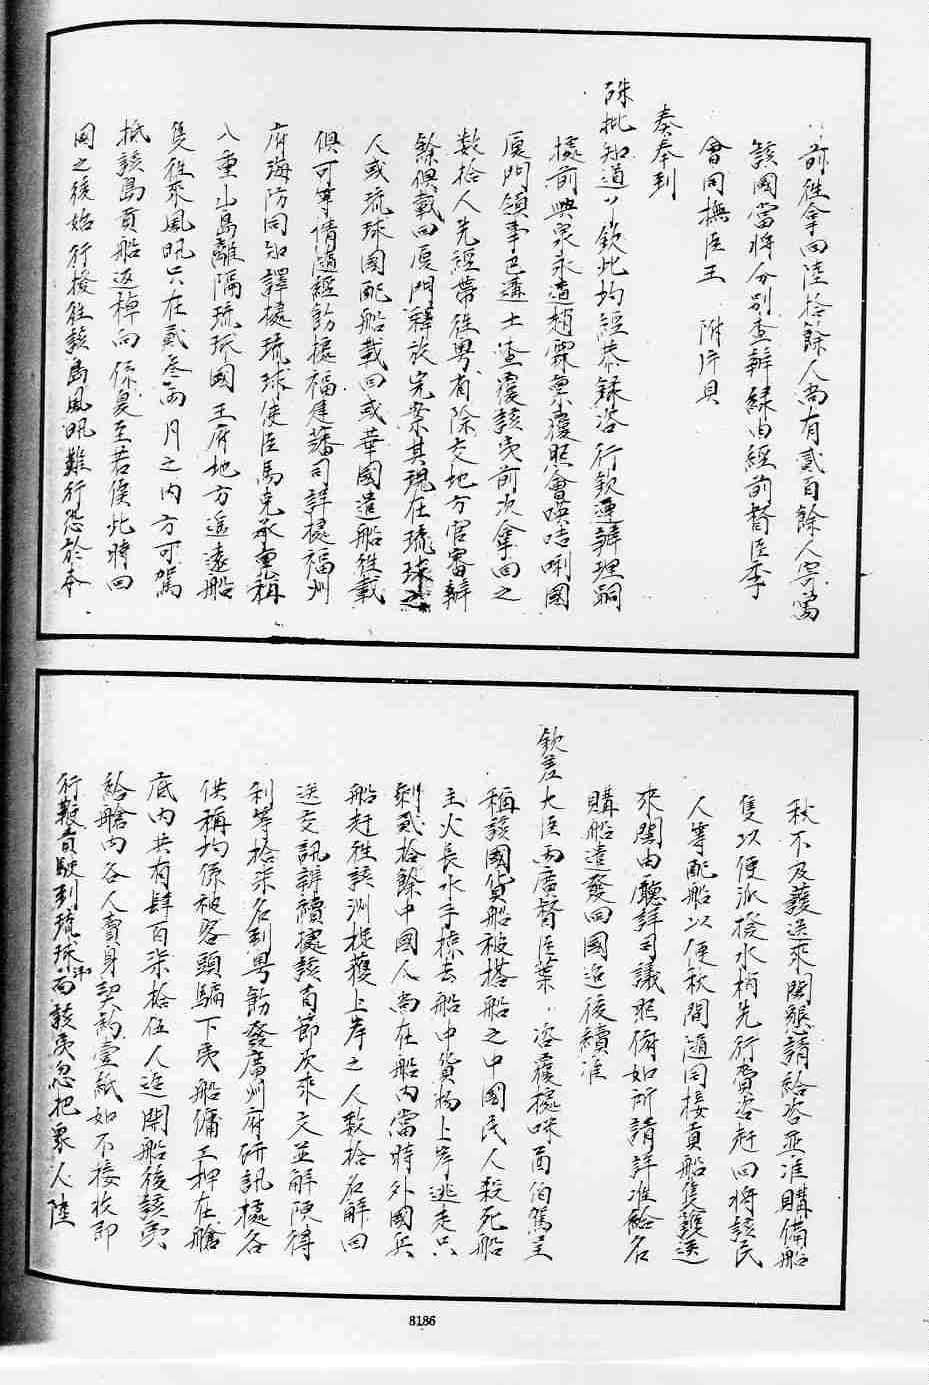 前往拿回陸拾餘人尚有貳百餘人寄寓
該國當將分別查辦緣由經前督臣季
會同撫臣王 附片具
奏奉到
硃批知道了欽此均經恭錄咨行欽遵辦理嗣
據前興泉永道趙霖稟覆照會㗸咭唎國
廈門領事巴遜士查覆該夷前次拿回之
數拾人先經帶往粵省除交地方官審辦
餘俱載回廈門釋放完案其現在琉球之
人或琉球國配船載回或華國遣船往載
俱可等情隨經飭據福建藩司詳據福州
府海防同知譯據琉球使臣馬克承稟稱
八重山島離隔琉球國王府地方遙遠船
隻往來風汛只在貳叁兩月之內方可駕
抵該島貢船返棹向係夏至若俟此時回
國之後始行撥往該島風汛難行恐於本
秋不及護送來閩懇請給咨並准購備船
隻以便派撥水梢先行賫咨赶回將該民
人等配船以便秋間隨同接貢船隻護送
來閩由廳詳司議照備如所請詳准給咨
購船遣發回國迨後續准
欽差大臣兩廣督臣葉 咨覆據咪酋伯駕呈
稱該國貨船被搭船之中國民人殺死船
主火長水手擄去船中貨物上岸逃走只
剩貳拾餘中國人尚在船內當時外國兵
船赶往該洲捉獲上岸之人數拾名解回
送交訊辦續據該酋節次來文並解陳得
利等拾柒名到粵飭發廣州府研訊據各
供稱均係被客頭騙下夷船傭工押在艙
底內共有肆百柒拾伍人迨開船後該夷
給艙內各人賣身契約壹紙如不接收即
行鞭責駛到琉球洋面該夷忽把眾人陸
8186